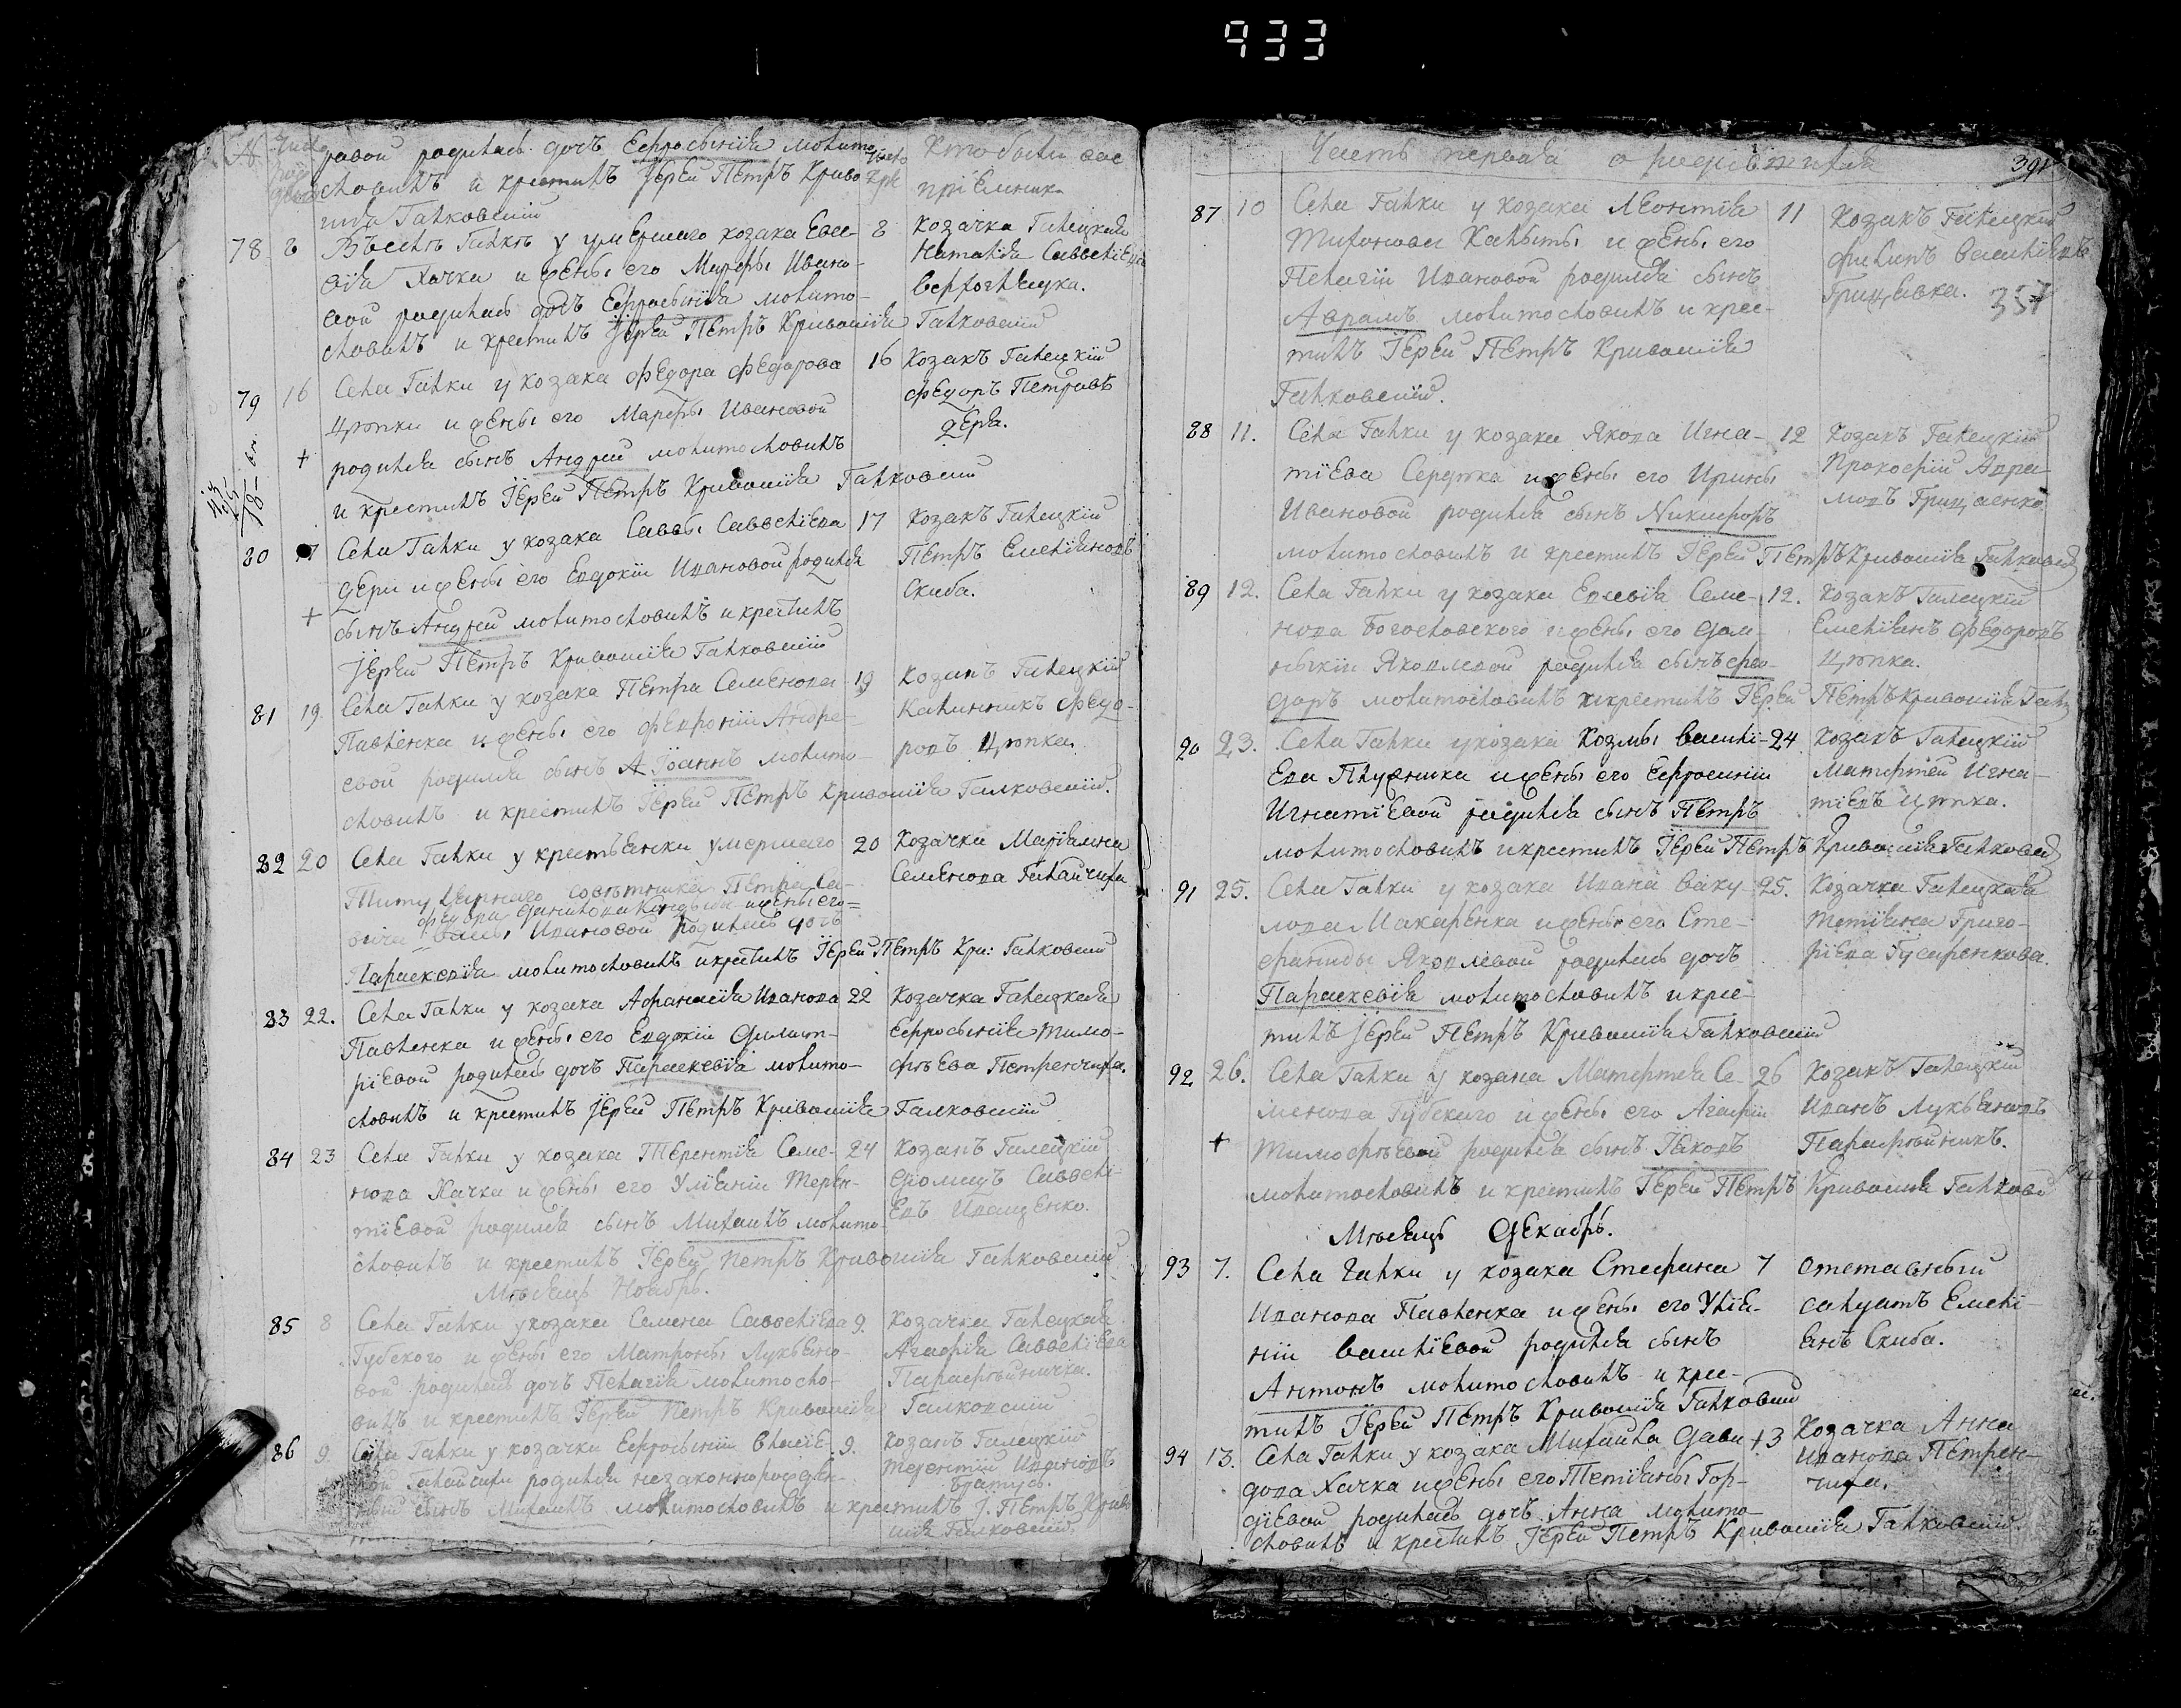 933
№ Число
ровой родилась дочъ Евфросынія молито
словилъ и крестилъ Іерей Петръ Криво
шія Галковскій
Кто были вос
пріемники
78 8 Въ селѣ Галкѣ у умершаго козака Евсе-
вія Хачка и жены его Марѳы Ивано-
вой родилась дочъ Евфросынія молито-
словилъ и крестилъ Іерей Петръ Кривошія Галковскій
8 Козачка Галецкая
Наталія Савеліева
79 16 Села Галки у козака Федора Федорова
Цюпки и жены его Марѳы Ивановой
+ родился сынъ Андрей молитословилъ
и крестилъ Іерей Петръ Кривошія Галковскій
16 Козакъ Галецкій
Федоръ Петровъ
Дера.
80 17 Села Галки у козака Саввы Савеліева
Дери и жены его Евдокіи Ивановой родился
+ сынъ Андрей молитословилъ и крестилъ
Іерей Петръ Кривошія Галковскій
17 Козакъ Галецкій
Петръ Емеліановъ
Скиба.
81 19. Села Галки у козака Петра Семенова
Павленка и жены его Февроніи Андре-
евой родился сынъ Іоаннъ молито-
словилъ и крестилъ Іерей Петръ Кривошія Галковскій.
19 Козакъ Галецкій
Калинникъ Федо-
ровъ Цюпка.
82 20 Села Галки у крестьянки умершаго
Титулярнаго совѣтника Петра
Федора Данилова и жены его
Ивановой родилась дочъ
Параскевія молитословилъ и крестилъ Іерей Петръ Кри: Галковскій
20 Козачка Маріамна
Семенова Галайчиха
83 22. Села Галки у козака Афанасія Иванова
Павленка и жены его Евдокіи Димит-
ріевой родилась дочъ Параскевія молито-
словилъ и крестилъ Іерей Петръ Кривошія Галковскій
22 Козачка Галецкая
Евфросынія Тимо-
фѣева Петренчиха.
84 23 Села Галки у козака Терентія Семе-
нова Хачка и жены его Уліяніи Терен-
тіевой родился сынъ Михаилъ молито-
словилъ и крестилъ Іерей Петръ Кривошія Галковскій
24 Козакъ Галецкій
Фомицъ Савелі-
евъ Иващенко.
Мѣсяцъ Ноябрь.
85 8 Села Галки у козака Семена Савеліева
Губского и жены его Матроны Лукьяно-
вой родилась дочъ Пелагія молитосло-
вилъ и крестилъ Іерей Петръ Кривошія Галковскій
9. Козачка Галецкая
Агафія Савеліева
Парафѣйничка.
86 9 Села Галки у козачки Евфросыніи
родился незаконнорожден-
ный сынъ Михаилъ молитословилъ и крестилъ І. Петръ Криво
шія Галковскій
9. Козакъ Галецкій
Терентій Ивановъ
Братусь.
Часть первая о родившихся
391
357
87 10 Села Галки у козака Леонтія
Тихонова Калыты и жены его
Пелагіи Ивановой родился сынъ
Аврамъ молитословилъ и крес-
тилъ Іерей Петръ Кривошія
Галковскій.
11 Козакъ Галецкій
Филипъ Василіевъ
Грицявка.
88 11. Села Галки у козака Якова Игна-
тіева Сердюка и жены его Ирины
Ивановой родился сынъ Никифоръ
молитословилъ и крестилъ Іерей Петръ Кривошія Галковскій
12 Козакъ Галецкій
Прокофій Авра-
мовъ Грицаенко
89 12. Села Галки у козака Евсевія Семе-
нова Богословского и жены его Дом-
ныкіи Яковлевой родился сынъ Фео-
доръ молитословилъ и крестилъ Іерей Петръ Кривошія Галк
12. Козакъ Галецкій
Емеліанъ Федоровъ
Цюпка.
90 23. Села Галки у козака Козмы Василі-
ева Плужника и жены его Евфросиніи
Игнатіевой родился сынъ Петръ
молитословилъ и крестилъ Іерей Петръ Кривошія Галковскій
24 Козакъ Галецкій
Матѳей Игна-
тіевъ Цюпка.
91 25. Села Галки у козака Ивана Ваку-
лова Макаренка и жены его Сте-
фаниды Яковлевой родилась дочъ
Параскевія молитословилъ и крес-
тилъ Іерей Петръ Кривошія Галковскій
25. Козачка Галецкая
Татіяна Григо-
ріева Гусаренкова.
92 26. Села Галки у козака Матѳея Се-
менова Губского и жены его Агафіи
+ Тимофѣевой родился сынъ Іаковъ
молитословилъ и крестилъ Іерей Петръ Кривошія Галковскій
26 Козакъ Галецкій
Иванъ Лукьяновъ
Парафѣйникъ.
Мѣсяцъ Декабрь.
93 7. Села Галки у козака Стефана
Иванова Павленка и жены его Уліа-
ніи Василіевой родился сынъ
Антонъ молитословилъ и крес-
тилъ Іерей Петръ Кривошія Галковскій
7 Отставный
салдатъ Емелі-
анъ Скиба.
94 13. Села Галки у козака Михайла Дави-
дова Хачка и жены его Татіяны Гор-
діевой родилась дочъ Анна молито-
словилъ и крестилъ Іерей Петръ Кривошія Галковскій
13 Козачка Анна
Иванова Петрен-
чиха.